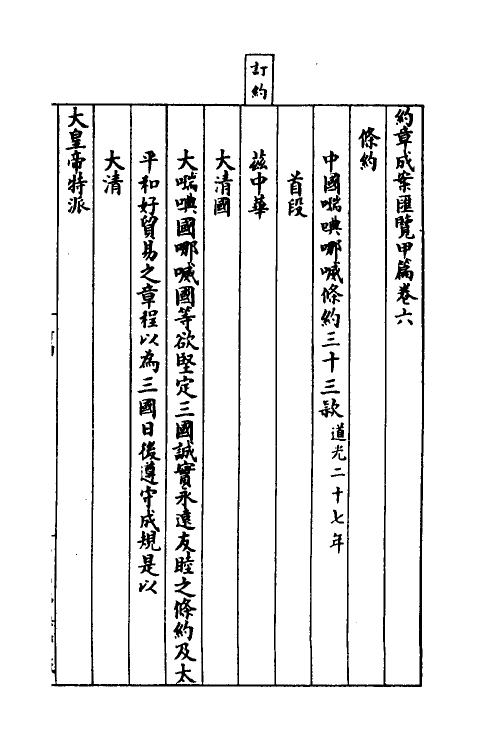 訂約
約章成案匯覽甲篇卷六
條約
中國㗐㖠哪㘙條約三十三款道光二十七年
首段
茲中華
大清國
大㗐㖠國哪㘙國等欲堅定三國誠實永遠友睦之條約及太
平和好貿易之章程以為三國日後遵守成規是以
大清
大皇帝特派